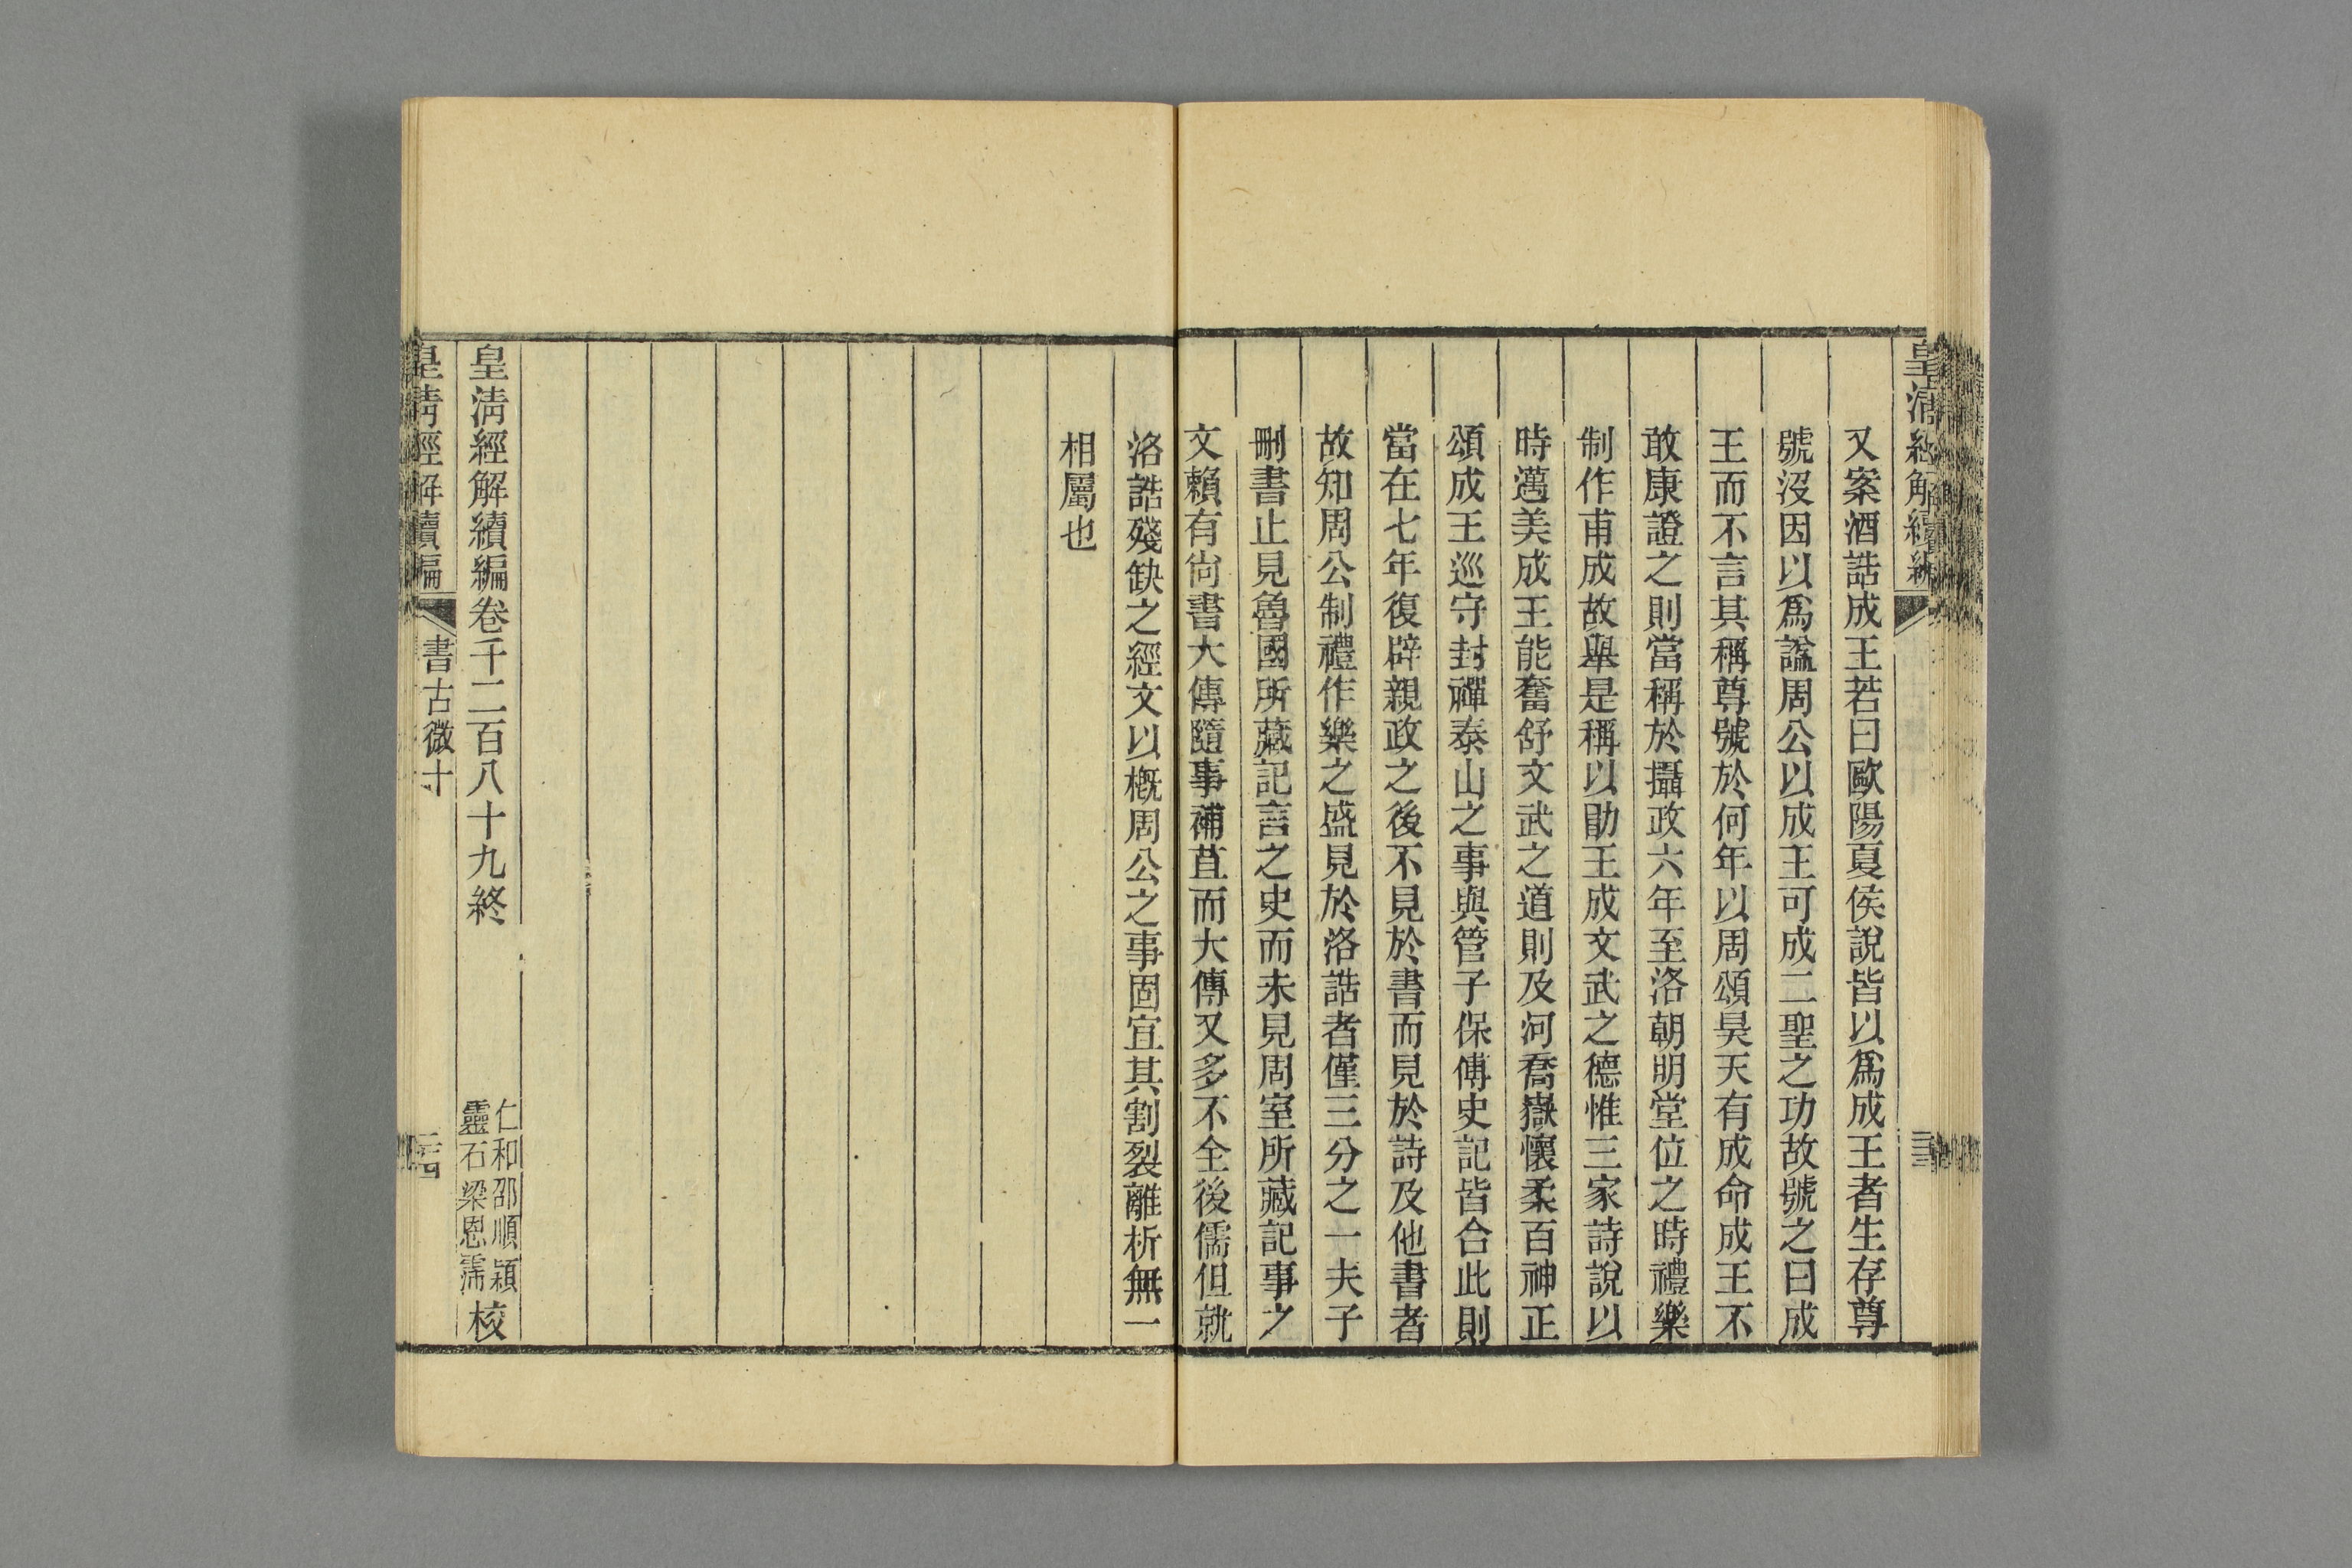 皇清經解續編
又案酒誥成王若曰歐陽夏侯說皆以爲成王者生存尊
號沒因以爲諡周公以成王可成二聖之功故號之曰成
王而不言其稱尊號於何年以周頌昊天有成命成王不
敢康證之則當稱於攝政六年至洛朝明堂位之時禮樂
制作甫成故舉是稱以勖王成文武之德惟三家詩說以
時邁美成王能奮舒文武之道則及河喬嶽懷柔百神正
頌成王巡守封禪泰山之事與管子保傅史記皆合此則
當在七年復辟親政之後不見於書而見於詩及他書者
故知周公制禮作樂之盛見於洛誥者僅三分之一夫子
刪書止見魯國所藏記言之史而未見周室所藏記事之
文賴有尙書大傳隨事補苴而大傳又多不全後儒但就
洛誥殘缺之經文以概周公之事固宜其割裂離析無一
相屬也
皇淸經解續編卷千二百八十九終
仁和邵順穎
靈石梁恩霈
校
皇清經解續編
書古微十